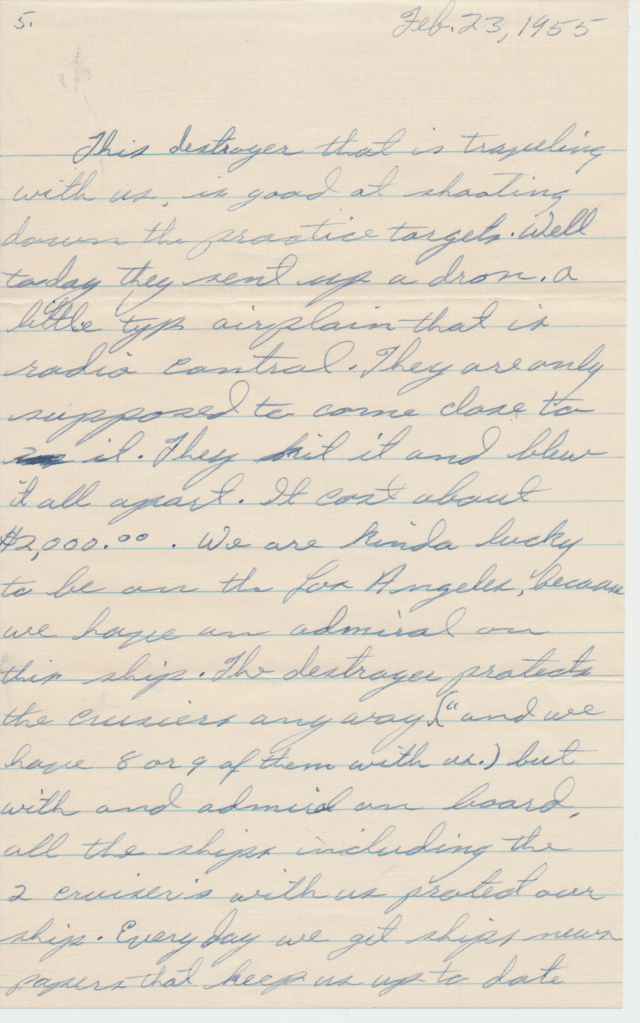 5.
Feb. 23, 1955
This destroyer that is traveling
with us, is good at shooting
down the practice targets. Well
today they sent up a dron. a
little typ airplain that is
radio control. They are only
supposed to come close to
it. They hit it and blew
it all apart. It cost about
$2,000.00. We are kinda lucky
to be on the Los Angeles, because
we have an admiral on
this ship. The destroyer protects
the crusiers anyway, ("and we
have 8 or 9 of them with us.) but
with and admiral on board,
all the ships including the
2 cruiser's with us protect our
ship. Every day we get ships news
papers that keep us up to date